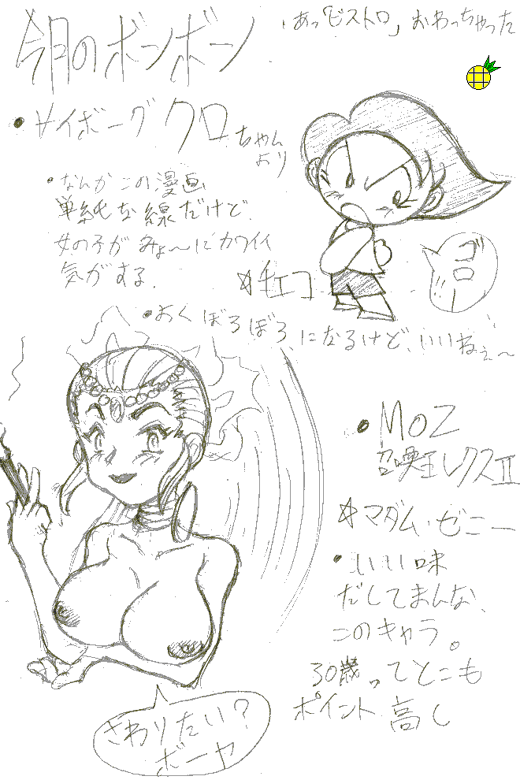 今月のボンボン
・あっ「ビストロ」おわっちゃった
・サイボーグクロちゃんより
・なんかこの漫画
単純な線だけど、
女の子がみょ〜にカワイイ
気がする.
☆チエコ
ゴロ
・よくぼろぼろになるけど、いいねぇ〜
・MOZ
召喚王レクスII
☆マダム・ゼニー
・いい味
だしてまんな、
このキャラ。
30歳ってとこも
ポイント高し
さわりたい?
ボーヤ